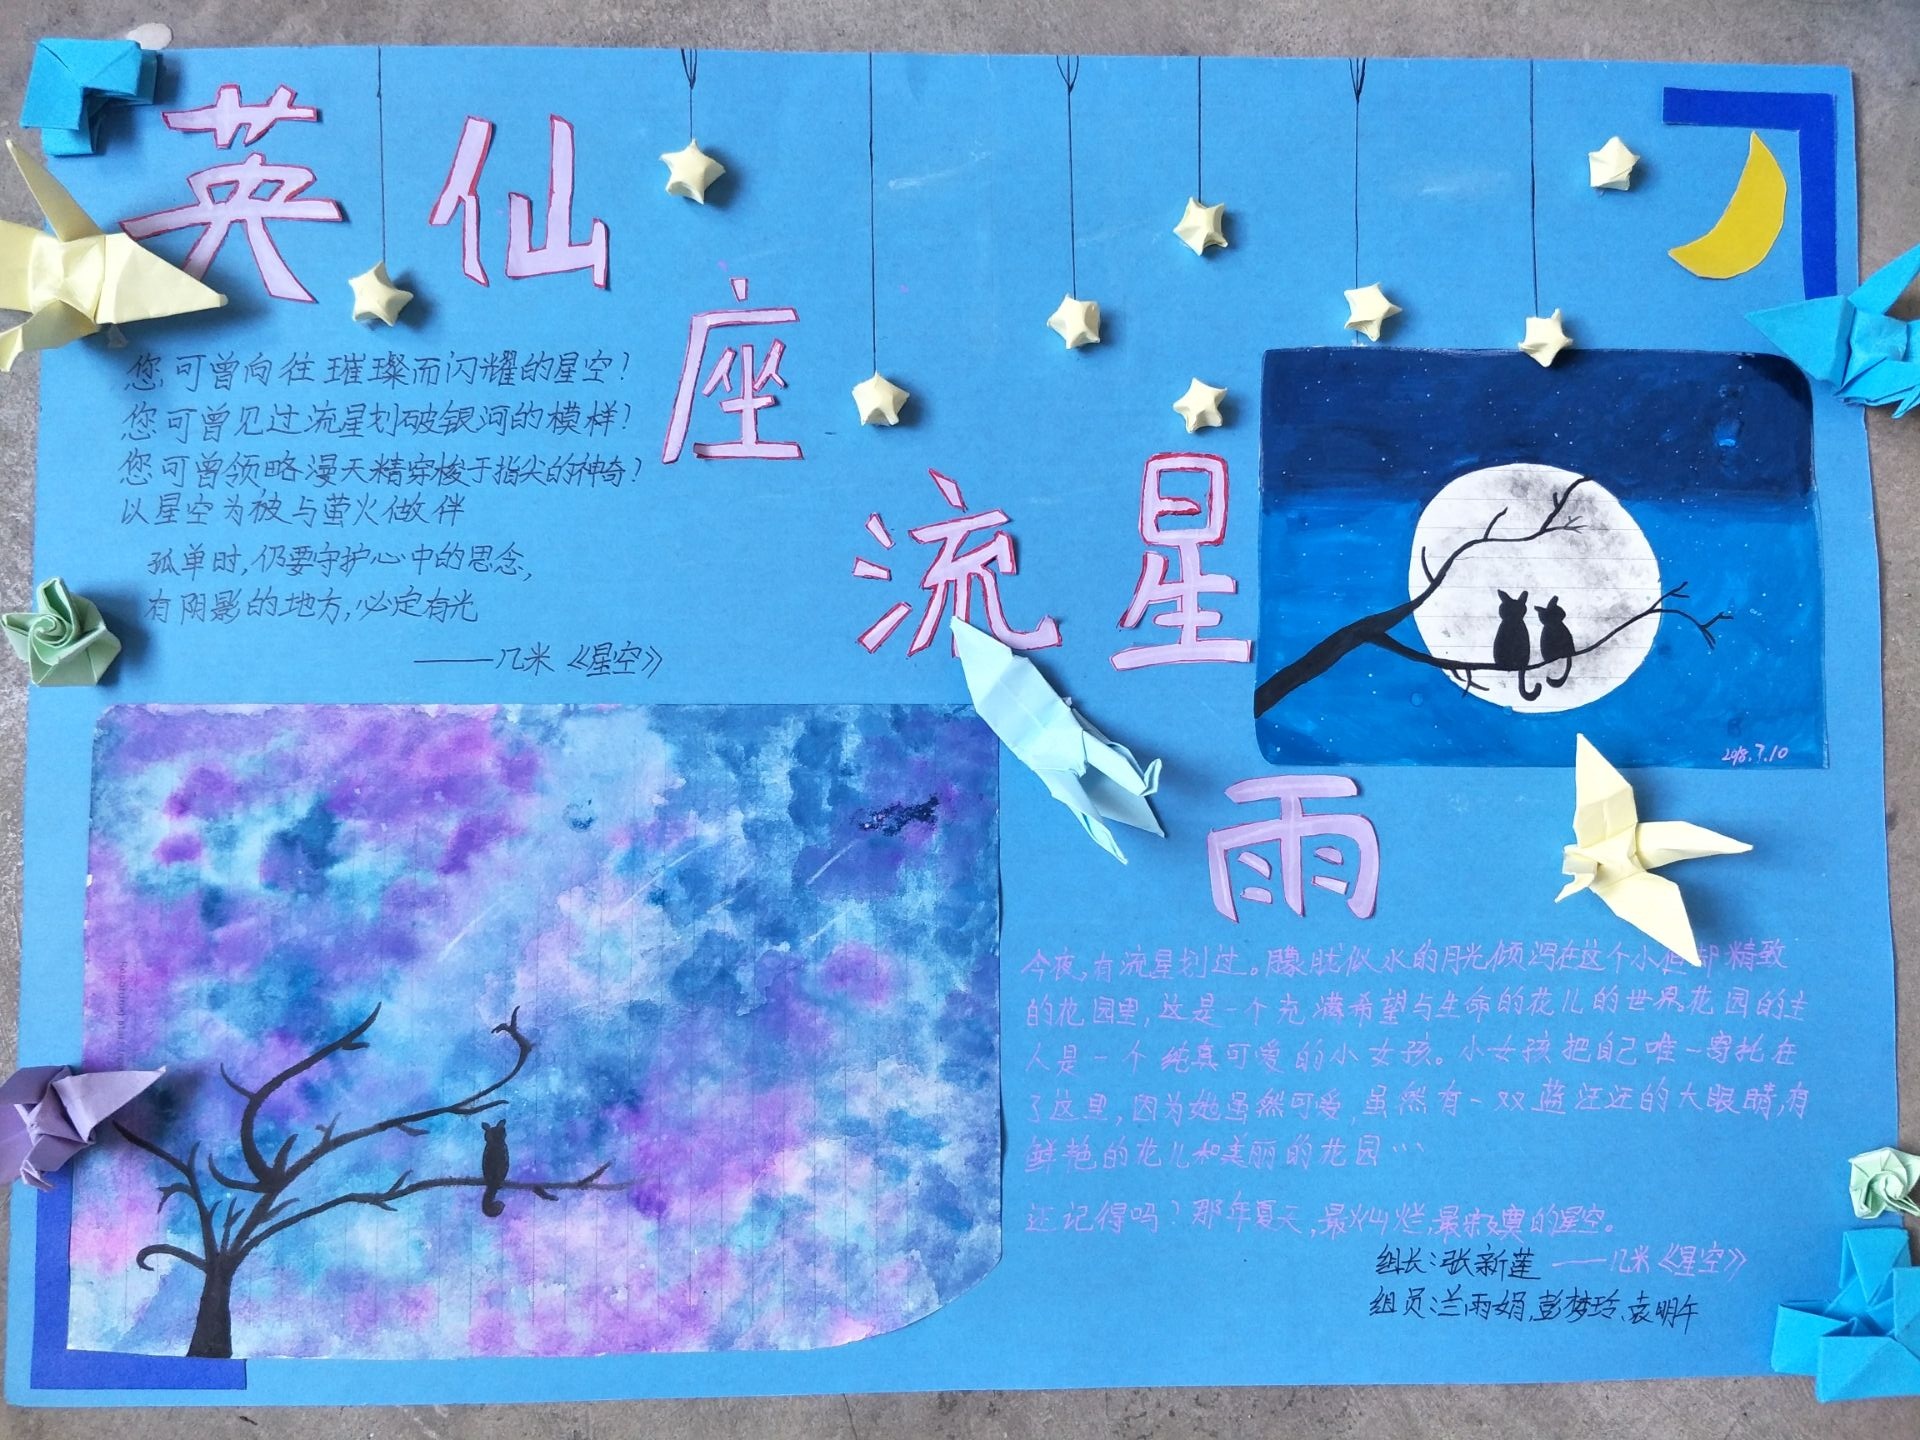 英仙座流星雨
您可曾向往璀璨而闪耀的星空!
您可曾见过流星划破银河的模样!
您可曾领略漫天精穿梭于指尖的神奇!
以星空为被与萤火做伴
孤单时,仍要守护心中的思念,
有阴影的地方,必定有光
——几米《星空》
2018.7.10
今夜,有流星划过。朦胧似水的月光倾泻在这个小但却精致
的花园里,这是一个充满希望与生命的花儿的世界。花园的主
人是一个纯真可爱的小女孩。小女孩把自己唯一寄托在
了这里,因为她虽然可爱,虽然有一双蓝汪汪的大眼睛,有
鲜艳的花儿和美丽的花园…
还记得吗?那年夏天,最灿烂,最寂寞的星空。
——几米《星空》
组长:张新莲
组员:兰雨娟,彭梦玲,袁明午